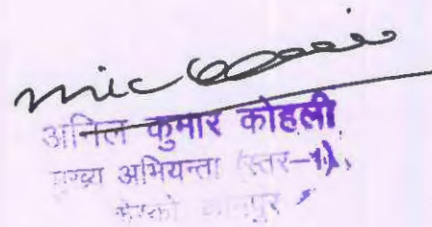 अनिल कुमार कोहली
मुख्य अभियन्ता (स्तर-1),
कानपुर